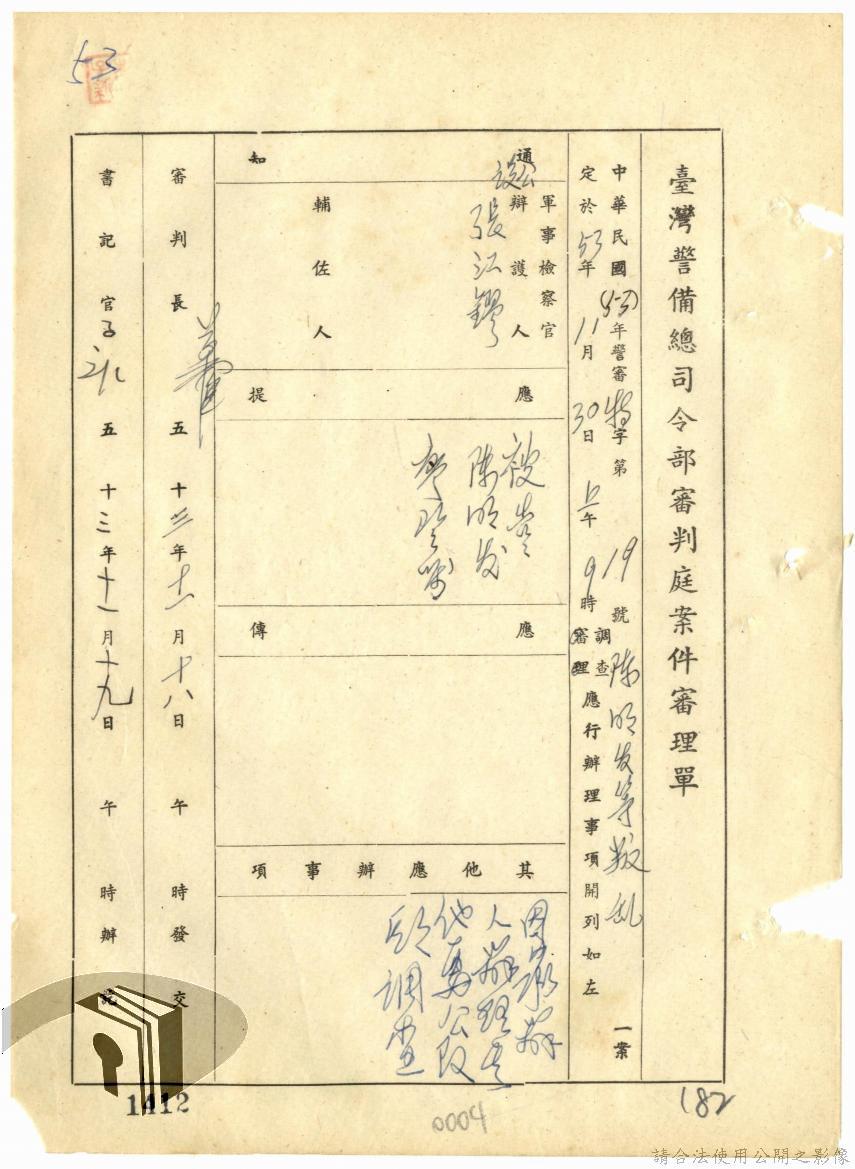 53
臺灣警備總司令部審判庭案件審理單
中華民國(53)年警審特字第19號陳明發等叛亂一案
定於53年11月30日上午9時調查審理應行辦理事項開列如左
通知
軍事檢察官
公設辯護人張江鏐
輔佐人
應提
被告
陳明發
應傳
其他應辦事項
因承辦
人辦理其
他要公改
期調查
審判長 五十三年十一月十八日午時發交
書記官 五十三年十一月十九日午時辦訖
1412
0004
182
請合法使用公開之影像